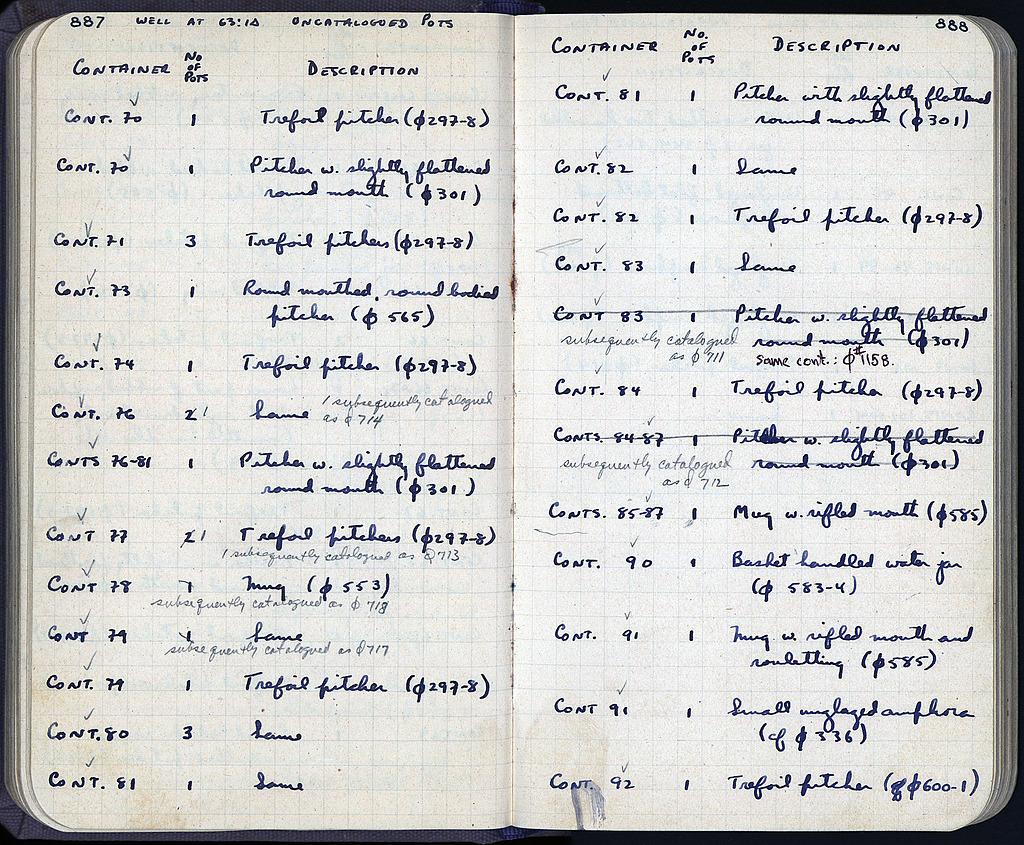 887 WELL AT 63:10 UNCATALOGUED POTS
CONTAINER NO OF POTS DESCRIPTION
CONT. 70 1 Trefoil pitcher (φ297-8)
CONT. 70 1 Pitcher w. slightly flattened
round mouth (φ301)
CONT. 71 3 Trefoil pitchers (φ297-8)
CONT. 73 1 Round mouthed, round bodied
pitcher (φ 565)
CONT. 74 1 Trefoil pitcher (φ297-8)
CONT. 76 2 1 Same 1 subsequently catalogued
as φ 714
CONTS 76-81 1 Pitcher w. slightly flattened
round mouth (φ301)
CONT 77 2 1 Trefoil pitchers (φ297-8)
1 subsequently catalogued as φ713
CONT 78 1 Mug (φ 553)
subsequently catalogued as φ 718
CONT 79 1 Same
subsequently catalogued as φ717
CONT. 79 1 Trefoil pitcher (φ297-8)
CONT. 80 3 Same
CONT. 81 1 Same
888
CONTAINER NO. OF POTS DESCRIPTION
CONT. 81 1 Pitcher with slightly flattened
round mouth (φ301)
CONT. 82 1 Same
CONT. 82 1 Trefoil pitcher (φ297-8)
CONT. 83 1 Same
CONT 83 1 Pitcher w. slightly flattened
subsequently catalogued round mouth (φ301)
as φ 711 same cont.: φ#1158.
CONT. 84 1 Trefoil pitcher (φ297-8)
CONTS. 84-87 1 Pitcher w. slightly flattened
subsequently catalogued round mouth (φ301)
as φ 712
CONTS. 85-87 1 Mug w. rifled mouth (φ585)
CONT. 90 1 Basket handled water jar
(φ 583-4)
CONT. 91 1 Mug w. rifled mouth and
rouletting (φ585)
CONT 91 1 Small unglazed amphora
(cf φ 336)
CONT. 92 1 Trefoil pitcher (φ600-1)